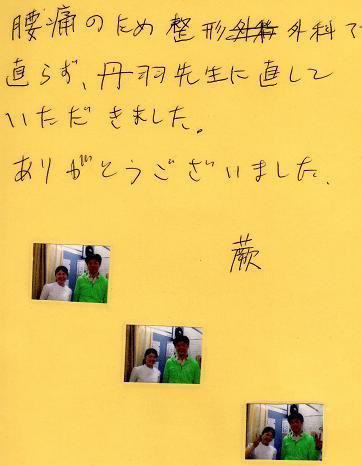 腰痛のため整形外科で
直らず、丹羽先生に直して
いただきました。
ありがとうございました.
蕨